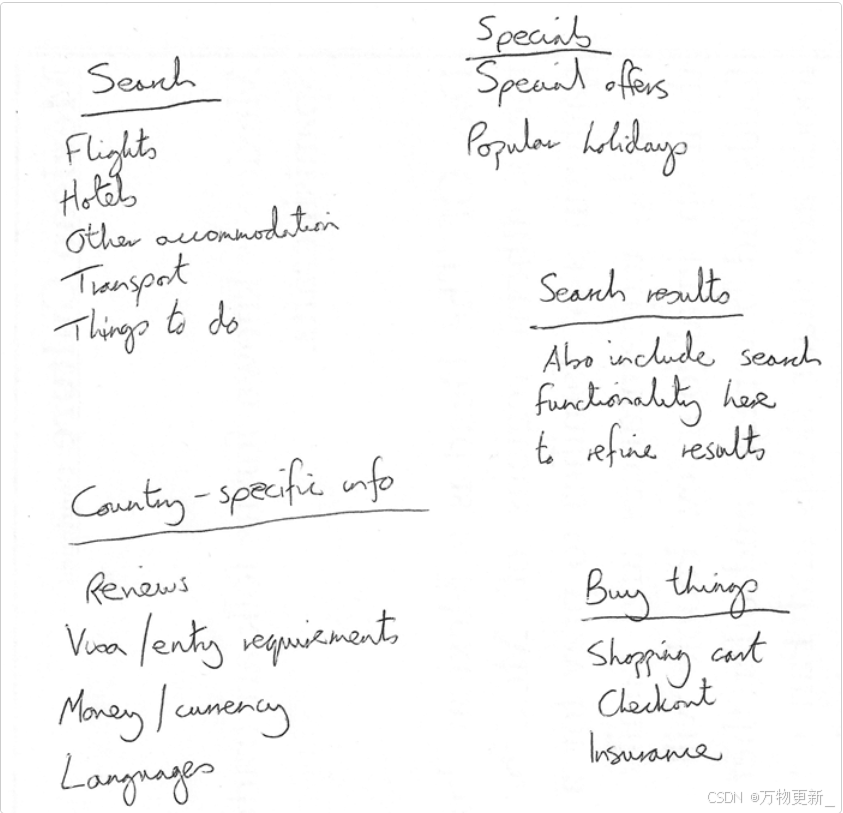 Search
Flights
Hotels
Other accommodation
Transport
Things to do
Specials
Special offers
Popular holidays
Search results
Also include search
functionality here
to refine results
Country-specific info
Reviews
Visa/entry requirements
Money/currency
Languages
Buy things
Shopping cart
Checkout
Insurance
CSDN @万物更新_